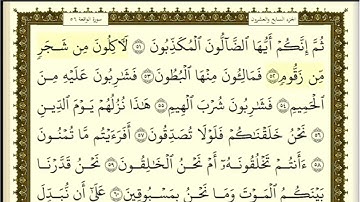 الجزء السابع والعشرون سورة الواقعة ٥٦
ثُمَّ إِنَّكُمْ أَيُّهَا ٱلضَّآلُّونَ ٱلْمُكَذِّبُونَ ٥١ لَأٓكِلُونَ مِن شَجَرٍ
مِّن زَقُّومٍ ٥٢ فَمَالِـُٔونَ مِنْهَا ٱلْبُطُونَ ٥٣ فَشَٰرِبُونَ عَلَيْهِ مِنَ
ٱلْحَمِيمِ ٥٤ فَشَٰرِبُونَ شُرْبَ ٱلْهِيمِ ٥٥ هَٰذَا نُزُلُهُمْ يَوْمَ ٱلدِّينِ
٥٦ نَحْنُ خَلَقْنَٰكُمْ فَلَوْلَا تُصَدِّقُونَ ٥٧ أَفَرَءَيْتُم مَّا تُمْنُونَ
٥٨ ءَأَنتُمْ تَخْلُقُونَهُۥٓ أَمْ نَحْنُ ٱلْخَٰلِقُونَ ٥٩ نَحْنُ قَدَّرْنَا
بَيْنَكُمُ ٱلْمَوْتَ وَمَا نَحْنُ بِمَسْبُوقِينَ ٦٠ عَلَىٰٓ أَن نُّبَدِّلَ